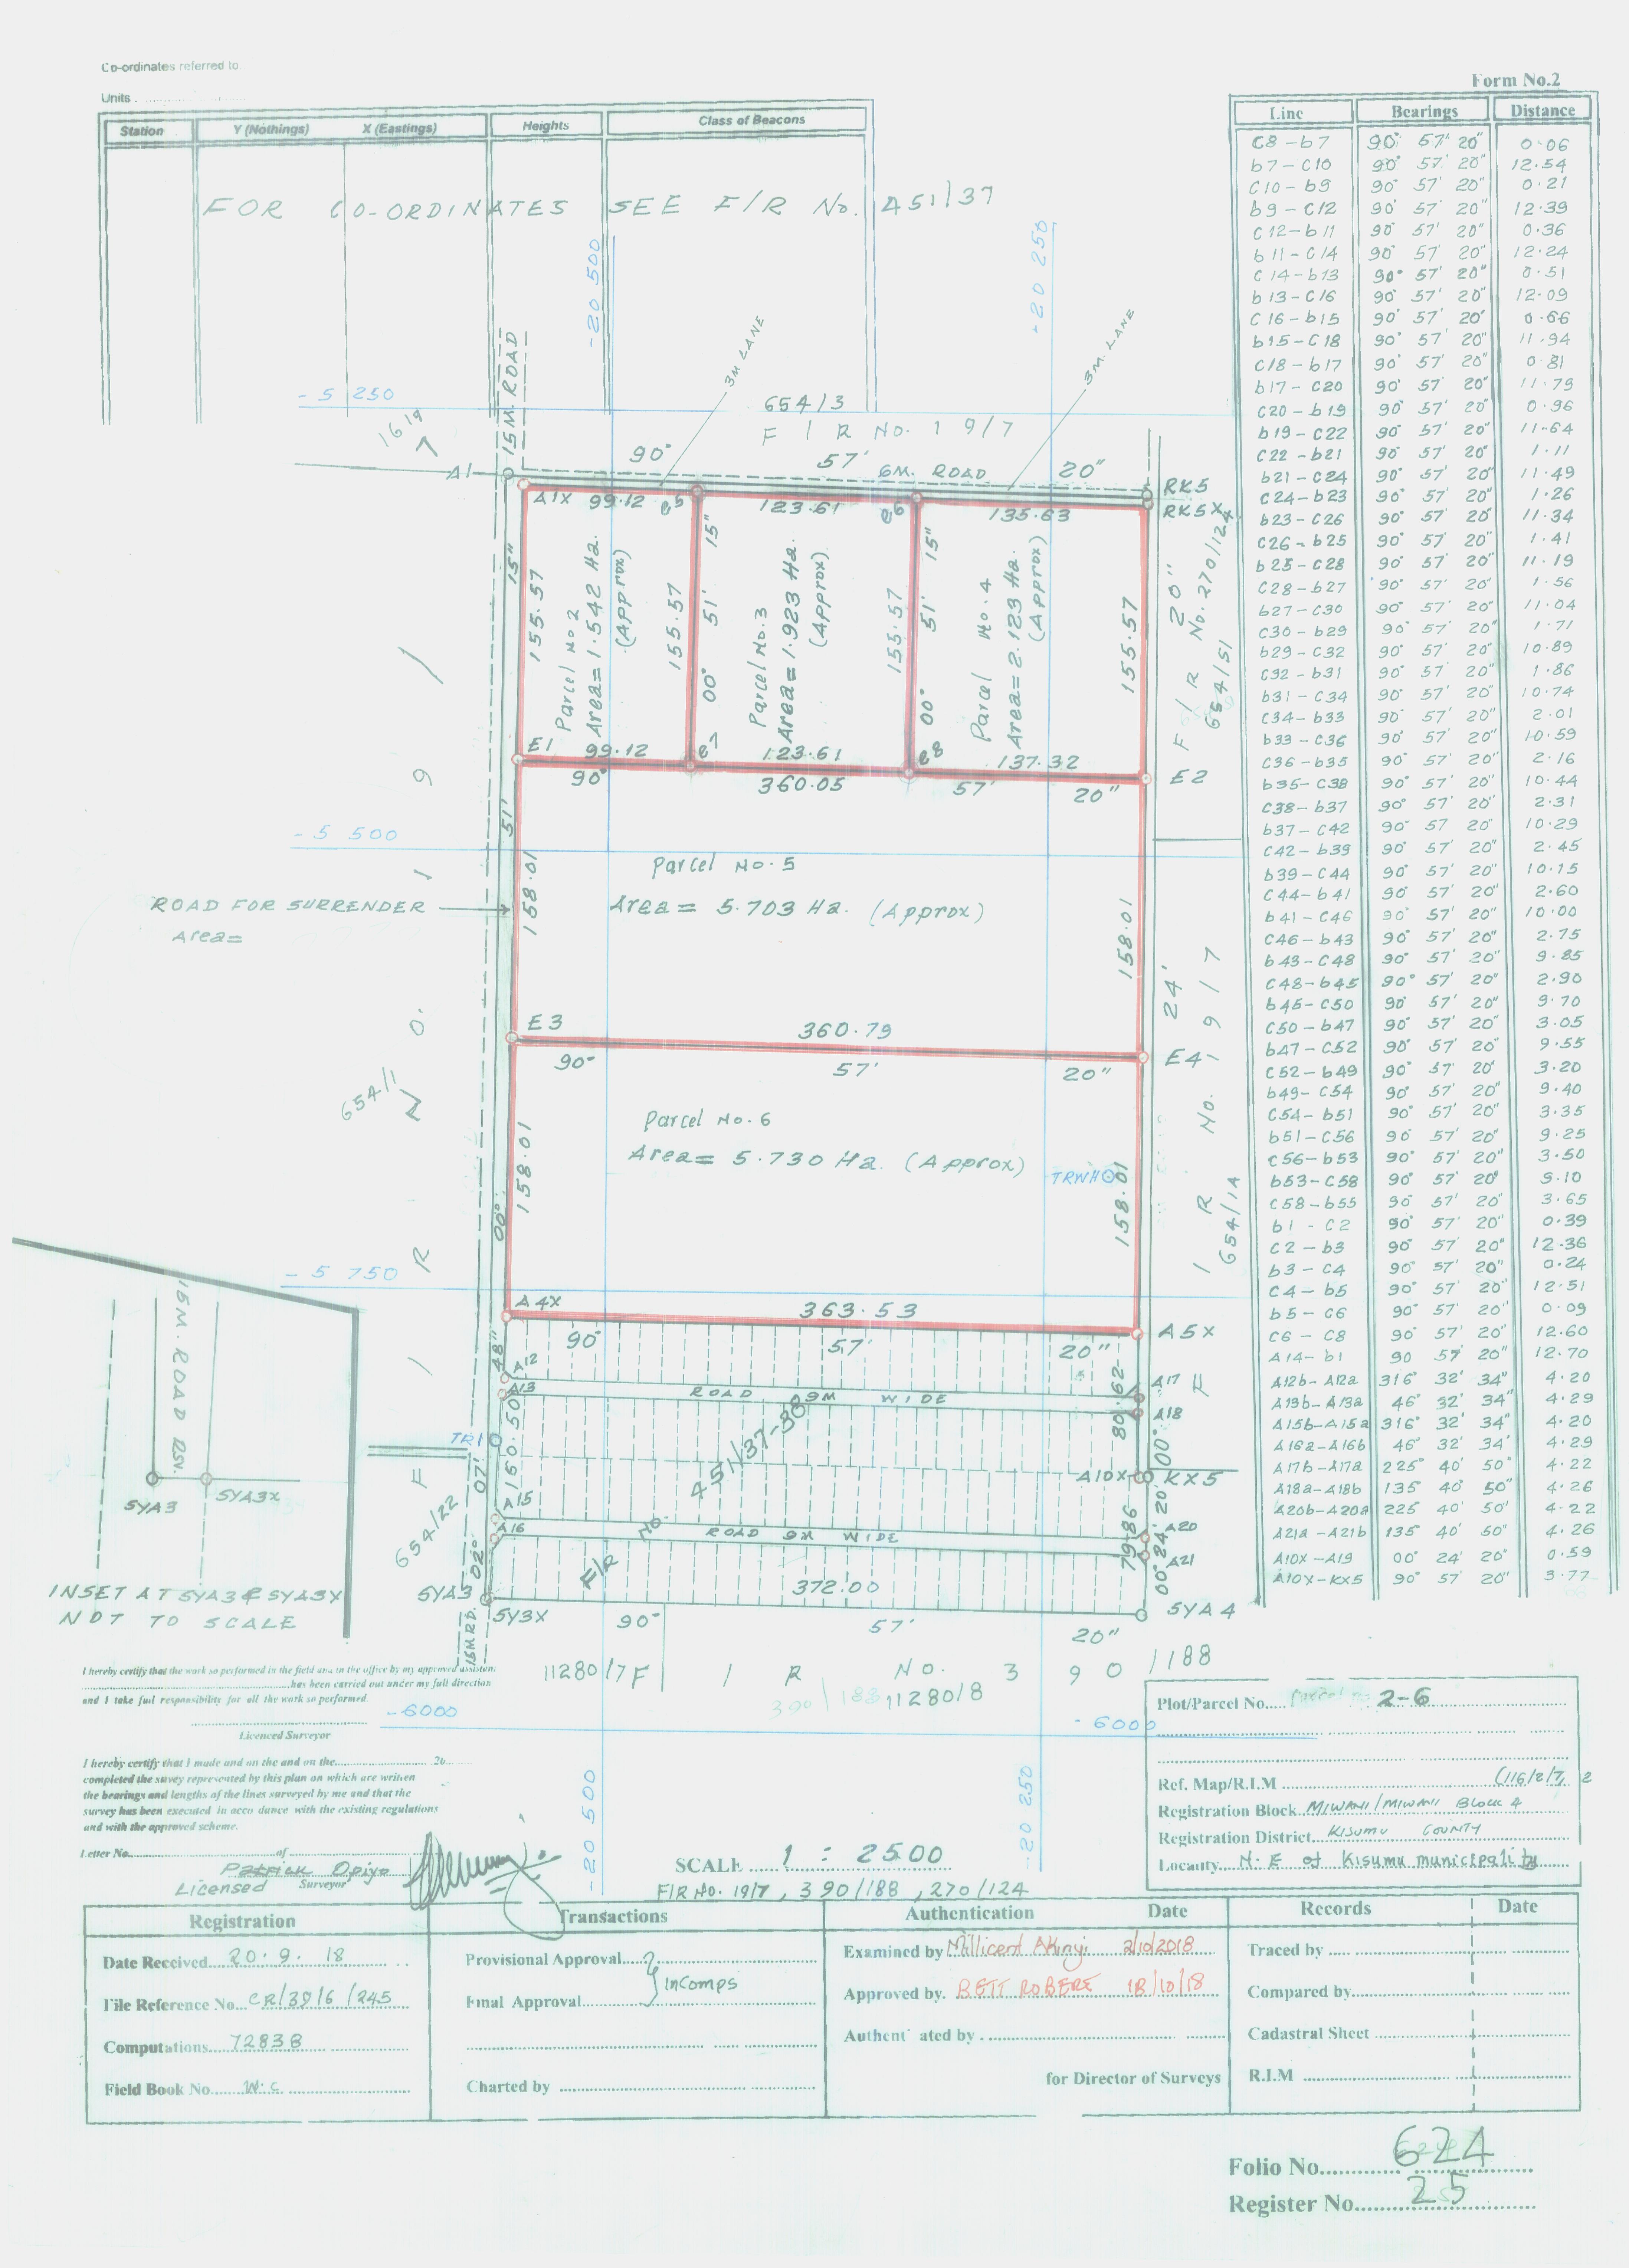 Co-ordinates referred to.
Units
Form No.2
Station Y (Nothings) X (Eastings) Heights Class of Beacons
FOR CO-ORDINATES SEE F/R No. 451/37
Line Bearings Distance
C8-b7 90° 57' 20" 0.06
b7-C10 90° 57' 20" 12.54
C10-b9 90° 57' 20" 0.21
b9-C12 90° 57' 20" 12.39
C12-b11 90° 57' 20" 0.36
b11-C14 90° 57' 20" 12.24
C14-b13 90° 57' 20" 0.51
b13-C16 90° 57' 20" 12.09
C16-b15 90° 57' 20" 0.66
b15-C18 90° 57' 20" 11.94
C18-b17 90° 57' 20" 0.81
b17-C20 90° 57' 20" 11.79
C20-b19 90° 57' 20" 0.96
b19-C22 90° 57' 20" 11.64
C22-b21 90° 57' 20" 1.11
b21-C24 90° 57' 20" 11.49
C24-b23 90° 57' 20" 1.26
b23-C26 90° 57' 20" 11.34
C26-b25 90° 57' 20" 1.41
b25-C28 90° 57' 20" 11.19
C28-b27 90° 57' 20" 1.56
b27-C30 90° 57' 20" 11.04
C30-b29 90° 57' 20" 1.71
b29-C32 90° 57' 20" 10.89
C32-b31 90° 57' 20" 1.86
b31-C34 90° 57' 20" 10.74
C34-b33 90° 57' 20" 2.01
b33-C36 90° 57' 20" 10.59
C36-b35 90° 57' 20" 2.16
b35-C38 90° 57' 20" 10.44
C38-b37 90° 57' 20" 2.31
b37-C42 90° 57 20" 10.29
C42-b39 90° 57' 20" 2.45
b39-C44 90° 57' 20" 10.15
C44-b41 90° 57' 20" 2.60
b41-C46 90° 57' 20" 10.00
C46-b43 90° 57' 20" 2.75
b43-C48 90° 57' 20" 9.85
C48-b45 90° 57' 20" 2.90
b45-C50 90° 57' 20" 9.70
C50-b47 90° 57' 20" 3.05
b47-C52 90° 57' 20" 9.55
C52-b49 90° 57' 20" 3.20
b49-C54 90° 57' 20" 9.40
C54-b51 90° 57' 20" 3.35
b51-C56 90° 57' 20" 9.25
C56-b53 90° 57' 20" 3.50
b53-C58 90° 57' 20" 9.10
C58-b55 90° 57' 20" 3.65
b1-C2 90° 57' 20" 0.39
C2-b3 90° 57' 20" 12.36
b3-C4 90° 57' 20" 0.24
C4-b5 90° 57' 20" 12.51
b5-C6 90° 57' 20" 0.09
C6-C8 90° 57' 20" 12.60
A14-b1 90 57' 20" 12.70
A12b-A12a 316° 32' 34" 4.20
A13b-A13a 46° 32' 34" 4.29
A15b-A15a 316° 32' 34" 4.20
A16a-A16b 46° 32' 34" 4.29
A17b-A17a 225° 40' 50" 4.22
A18a-A18b 135 40 50" 4.26
A20b-A20a 225 40' 50" 4.22
A21a-A21b 135 40' 50" 4.26
A10X-A19 00° 24' 20" 0.59
A10X-KX5 90° 57' 20" 3.77
-20 500
-20 250
3M LANE
3M. LANE
15 M. ROAD
-5 250
654/3
F/R No. 19/7
1619
7
90° 57' 20"
6M. ROAD
A1
RK5
A1X 99.12 e5 123.61 e6 135.63 RK5X
15" 155.57
Parcel No 2
Area=1.542 Ha.
(Approx)
155.57
00° 51' 15"
Parcel No.3
Area=1.923 Ha.
(Approx)
155.57
00° 51' 15"
Parcel No.4
Area=2.123 Ha.
(Approx)
155.57
20"
F/R No. 270/124
654/51
E1 99.12 e7 123.61 e8 137.32 E2
90° 360.05 57' 20"
51'
-5 500
Parcel No.5
Area= 5.703 Ha. (Approx)
158.01
158.01
ROAD FOR SURRENDER
Area=
24'
E3 360.79 E4
90° 57' 20"
F/R No. 19/7
654/1
654/1A
Parcel No.6
Area= 5.730 Ha. (Approx)
TRWH
158.01
158.01
00°
-5 750
A4X 363.53 A5X
90° 57' 20"
48"
A12
A13 ROAD 9M WIDE A17
A18
80.62
150.50
TR1
451/37-38
A10X KX5
00°
07'
A15
A16 ROAD 9M WIDE A20
A21
79.86
00° 24' 20"
F/R No.
654/22
02°
5YA3
5Y3X
372.00
5YA4
90° 57' 20"
15M RD.
15M. ROAD RSV.
5YA3 5YA3X
INSET AT 5YA3 & 5YA3X
NOT TO SCALE
11280/7 F/R No. 390/188
390/183 11280/8
-6000
-6000
-20 500
-20 250
I hereby certify that the work so performed in the field and in the office by my approved assistant
has been carried out under my full direction
and I take full responsibility for all the work so performed.
Licenced Surveyor
I hereby certify that I made and on the and on the 20
completed the survey represented by this plan on which are written
the bearings and lengths of the lines surveyed by me and that the
survey has been executed in acco dance with the existing regulations
and with the approved scheme.
Letter No. of
Patrick Opiyo
Licensed Surveyor
SCALE 1 : 2500
F/R No. 19/7, 390/188, 270/124
Plot/Parcel No. Parcel no 2-6
Ref. Map/R.I.M (116/2/7, 2
Registration Block MIWANI/MIWANI Block 4
Registration District KISUMU COUNTY
Locality N.E of Kisumu municipality
Registration
Date Received 20.9.18
File Reference No. CR/39/6/245
Computations 72838
Field Book No. W.C
Transactions
Provisional Approval
Final Approval
} Incomps
Charted by
Authentication Date
Examined by Millicent Akinyi 2/10/2018
Approved by. BETT ROBERT 18/10/18
Authent ated by
for Director of Surveys
Records Date
Traced by
Compared by
Cadastral Sheet
R.I.M
Folio No. 624
Register No. 25